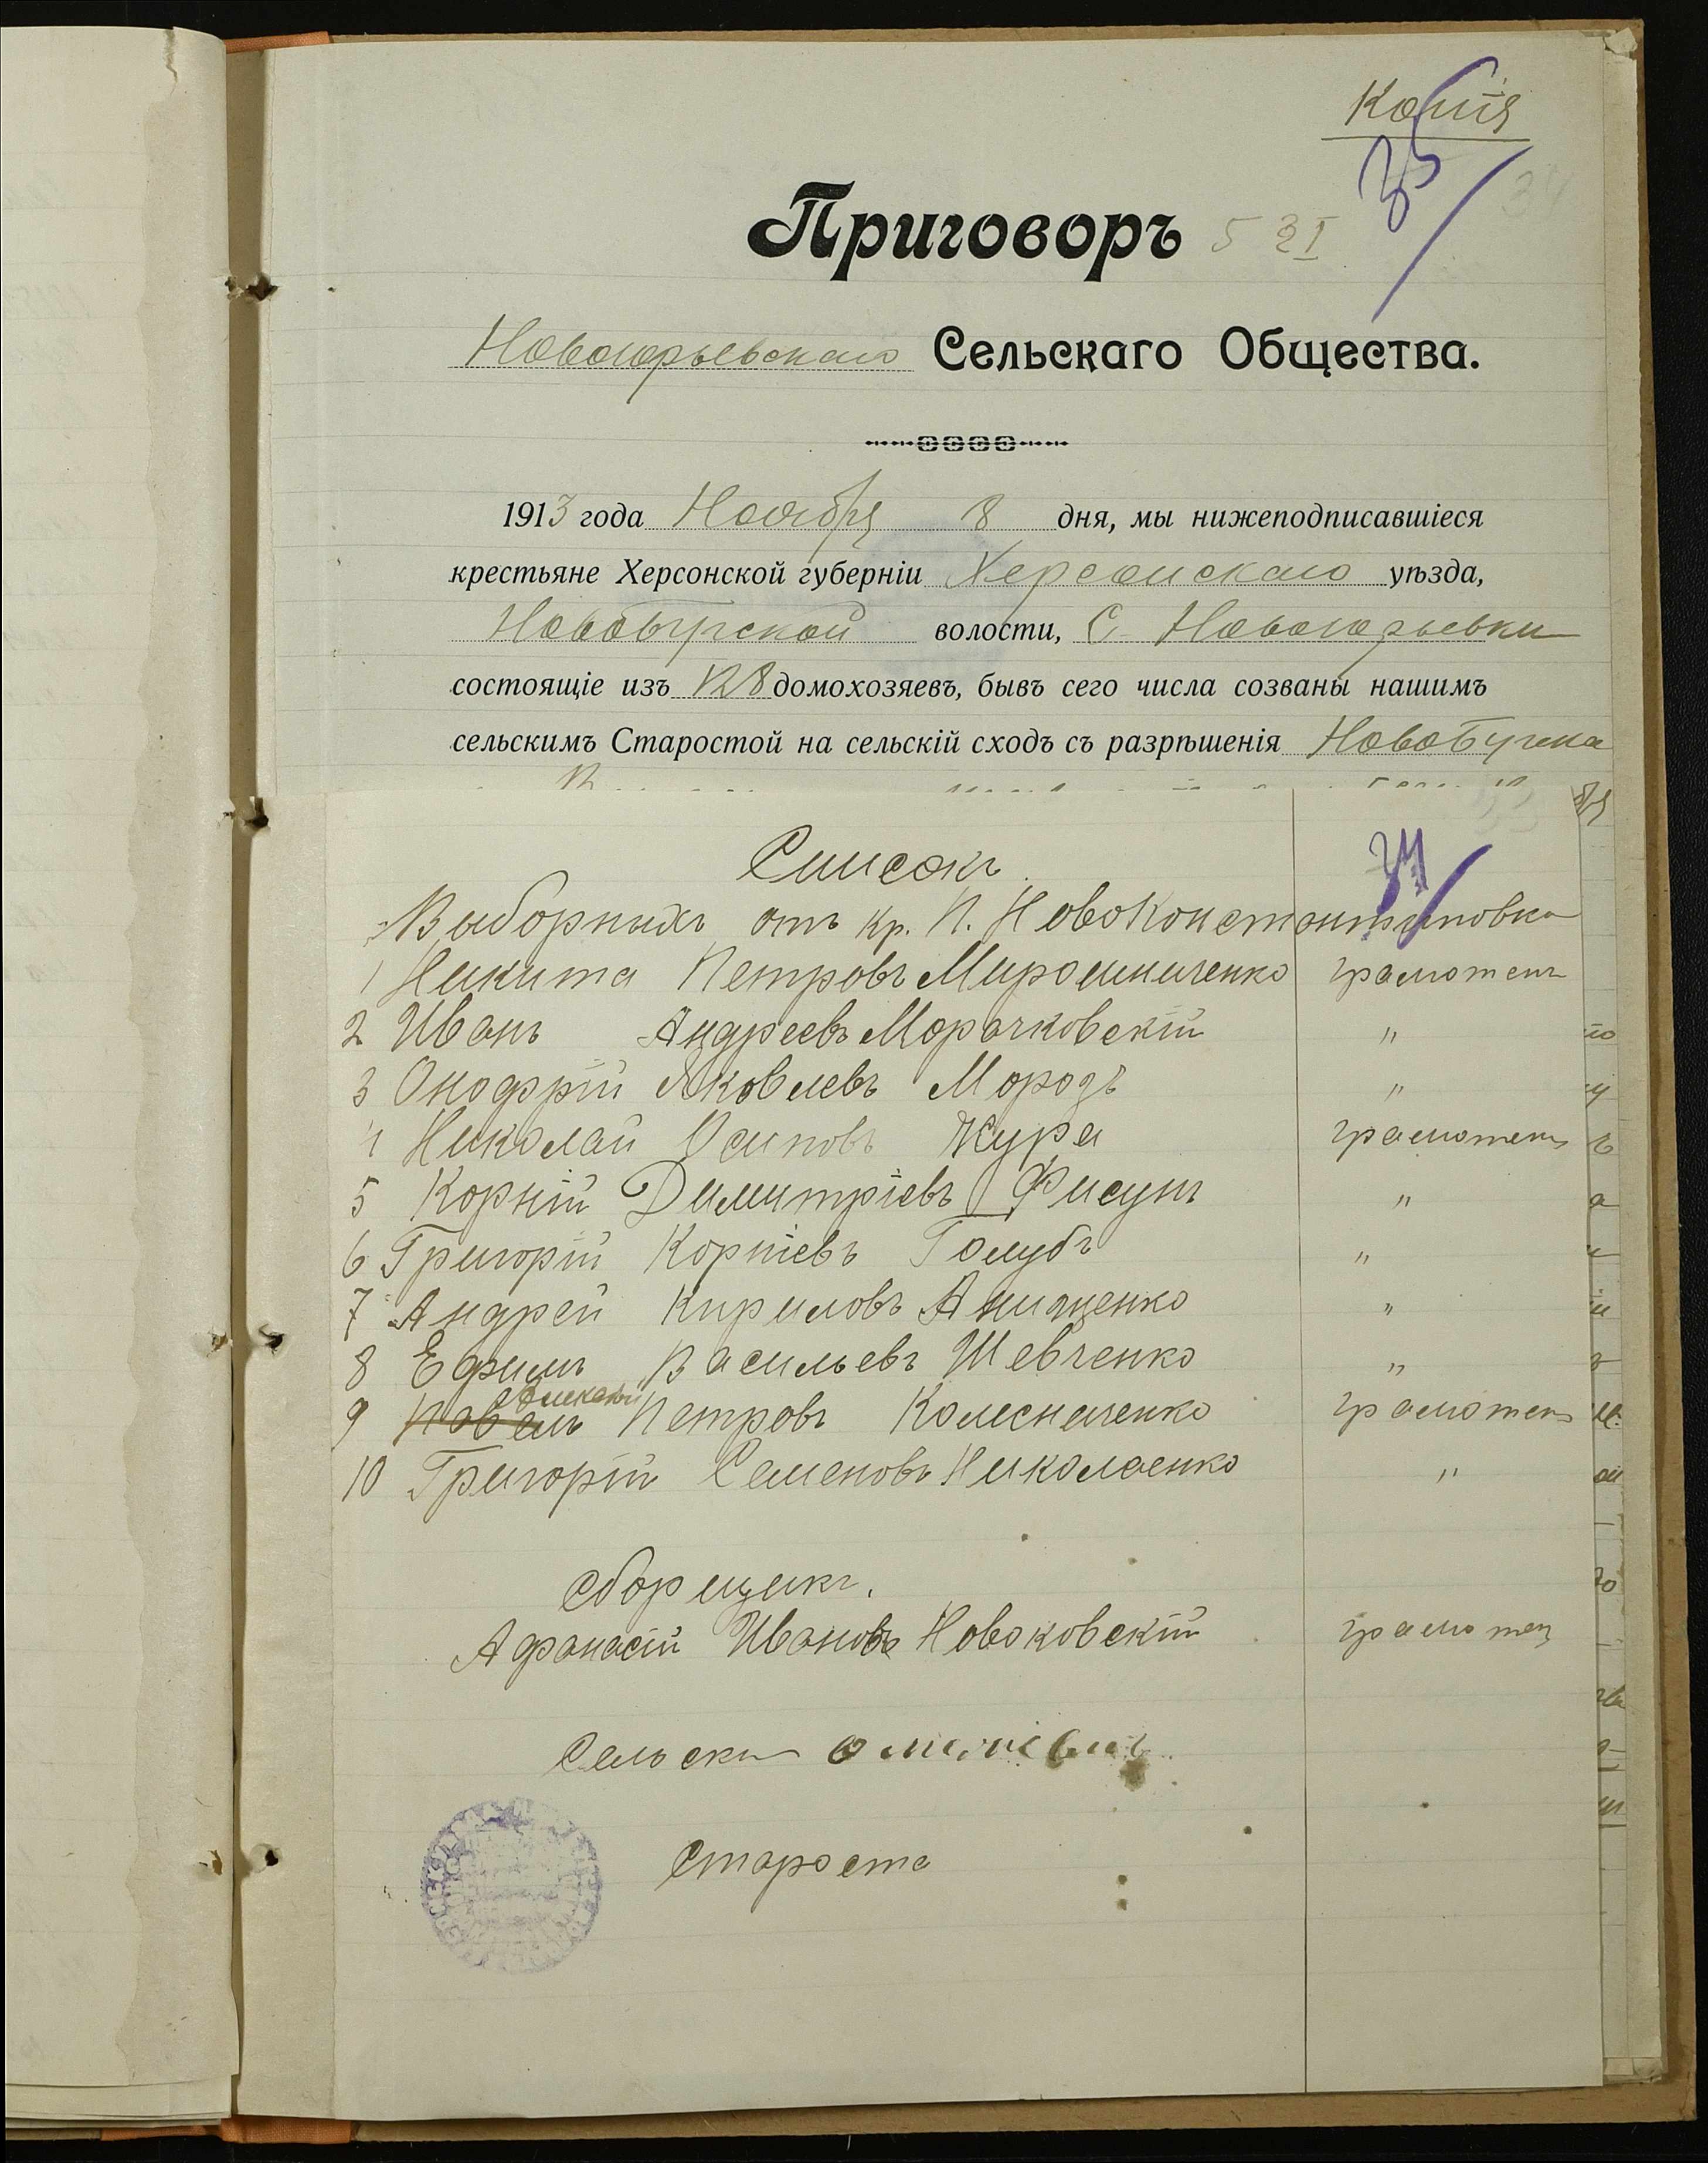 Копія
35
34
Приговоръ 5 21
Новоюрьевскаго Сельскаго Общества.
1913 года Ноября 8 дня, мы нижеподписавшіеся
крестьяне Херсонской губерніи Херсонскаго уѣзда,
Новобугской волости, С. Новоюрьевки
состоящіе изъ 128 домохозяевъ, бывъ сего числа созваны нашимъ
сельскимъ Старостой на сельскій сходъ съ разрѣшенія НовоБугска
Списокъ
34
Выборныхъ отъ кр. п. НовоКонстантиновка
1 Никита Петровъ Мирошниченко грамотенъ
2 Иванъ Андреевъ Морачковскій "
3 Онофрій Яковлевъ Морозъ "
4 Николай Осиповъ Жура грамотенъ
5 Корній Димитріевъ Фисунъ "
6 Григорій Корніевъ Голубъ "
7 Андрей Кириловъ Анищенко "
8 Ефимъ Васильевъ Шевченко "
Алексѣй
9 Павелъ Петровъ Колесниченко грамотенъ
10 Григорій Семеновъ Николаенко "
Сборщикъ.
Афанасій Ивановъ Новаковскій грамотен
Сельски
Староста